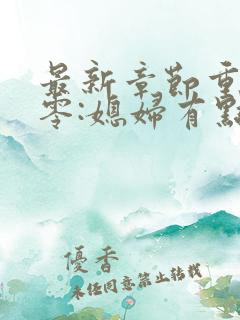 最新章節重
零:媳婦有點
優香
未經同意禁止轉載